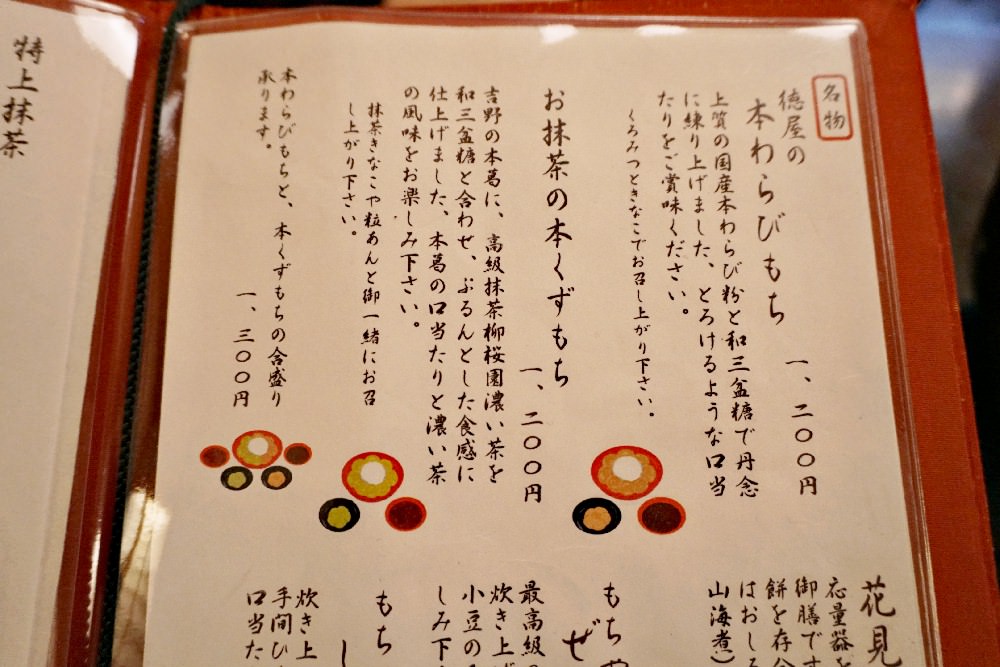 名物
徳屋の
本わらびもち
一、二〇〇円
上質の国産本わらび粉と和三盆糖で丹念
に練り上げました、とろけるような口当
たりをご賞味ください。
くろみつときなこでお召し上がり下さい。
お抹茶の本くずもち
一、二〇〇円
吉野の本葛に、高級抹茶柳桜園濃い茶を
和三盆糖と合わせ、ぷるんとした食感に
仕上げました、本葛の口当たりと濃い茶
の風味をお楽しみ下さい。
抹茶きなこや粒あんと御一緒にお召
し上がり下さい。
本わらびもちと、本くずもちの合盛り
承ります。
一、三〇〇円
花見
応量器を
御膳です
餅を存分
はおしる
山海煮)
もちや
ぜ
最高級の
炊き上げ
小豆の
しみ下
もち
し
炊き上
手間ひ
口当た
特上抹茶